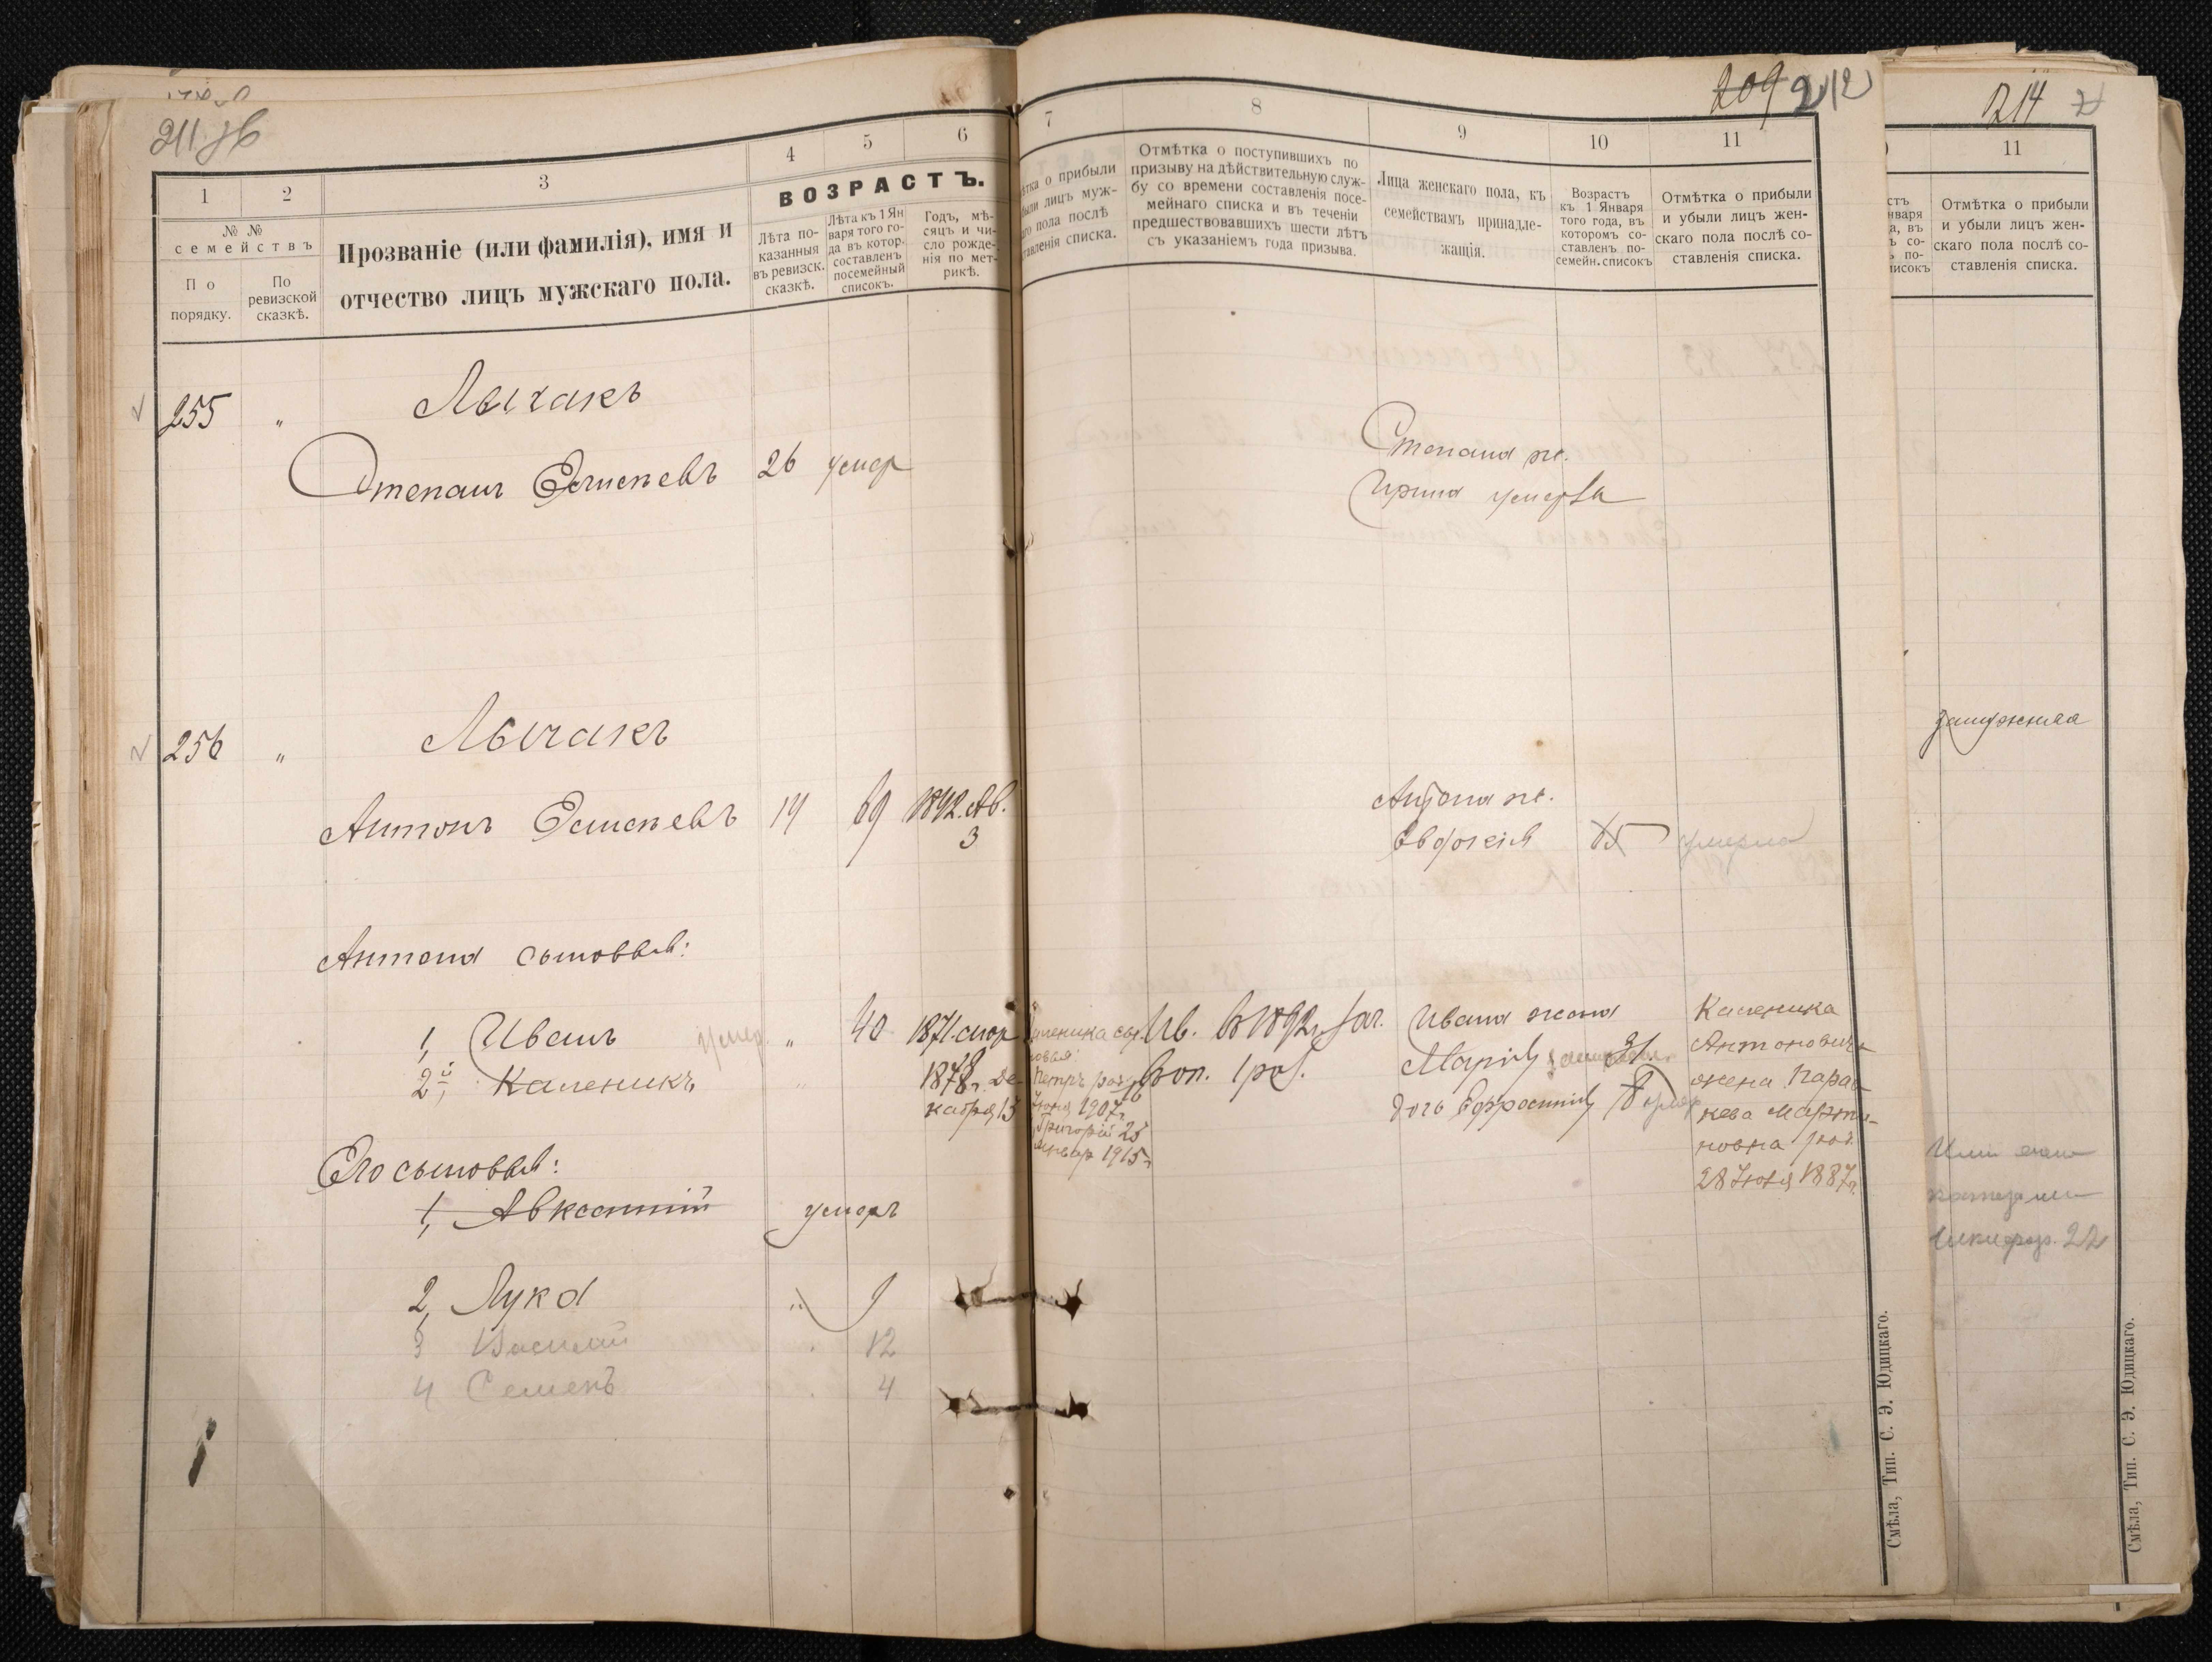 211 об
209 212
214
1
2
3
4
5
6
ВОЗРАСТЪ.
№ №
семействъ
По
порядку.
По
ревизской
сказкѣ.
Прозваніе (или фамилія), имя и
отчество лицъ мужскаго пола.
Лѣта по-
казанныя
въ ревизск.
сказкѣ.
Лѣта къ 1 Ян
варя того го-
да въ котор.
составленъ
посемейный
списокъ.
Годъ, мѣ-
сяцъ и чи-
сло рожде-
нія по мет-
рикѣ.
255 "
Лычакъ
Степанъ Евсиевъ 26 умер
256 "
Лычакъ
Антонъ 14 69 1842. Ав.
3
Антона сыновья:
1, Иванъ умер. " 40 1871.
2й, Каленикъ " 1878г. Де-
кабря 15
Его сыновья:
1, Авксентій умеръ
2, Лука " 9
3 Василій 12
4 Семенъ 4
7
8
9
10
11
о прибыли
были лицъ муж-
пола послѣ
ставленія списка.
Отмѣтка о поступившихъ по
призыву на дѣйствительную служ-
бу со времени составленія посе-
мейнаго списка и въ теченіи
предшествовавшихъ шести лѣтъ
съ указаніемъ года призыва.
Лица женскаго пола, къ
семействамъ принадле-
жащія.
Возрастъ
къ 1 Января
того года, въ
которомъ со-
ставленъ по-
семейн. списокъ
Отмѣтка о прибыли
и убыли лицъ жен-
скаго пола послѣ со-
ставленія списка.
Степана ж.
Ирина умерла
Антона ж.
Евдокія 65 умерла
Каленика сы-
новья:
Петръ род. 16
Іюня 1907г.
Григорій 25
Январ 1915г.
Ив. въ 1892г. зач.
воп. 1 раз.
Ивана жена
Марія 31
дочь Евфросинія 8 умер
Каленика
Антоновича
жена Парас-
кева Марти-
новна род.
28 Іюля 1887г.
Смѣла, Тип. С. Э. Юдицкаго.
11
Отмѣтка о прибыли
и убыли лицъ жен-
скаго пола послѣ со-
ставленія списка.
замужняя
22
Смѣла, Тип. С. Э. Юдицкаго.